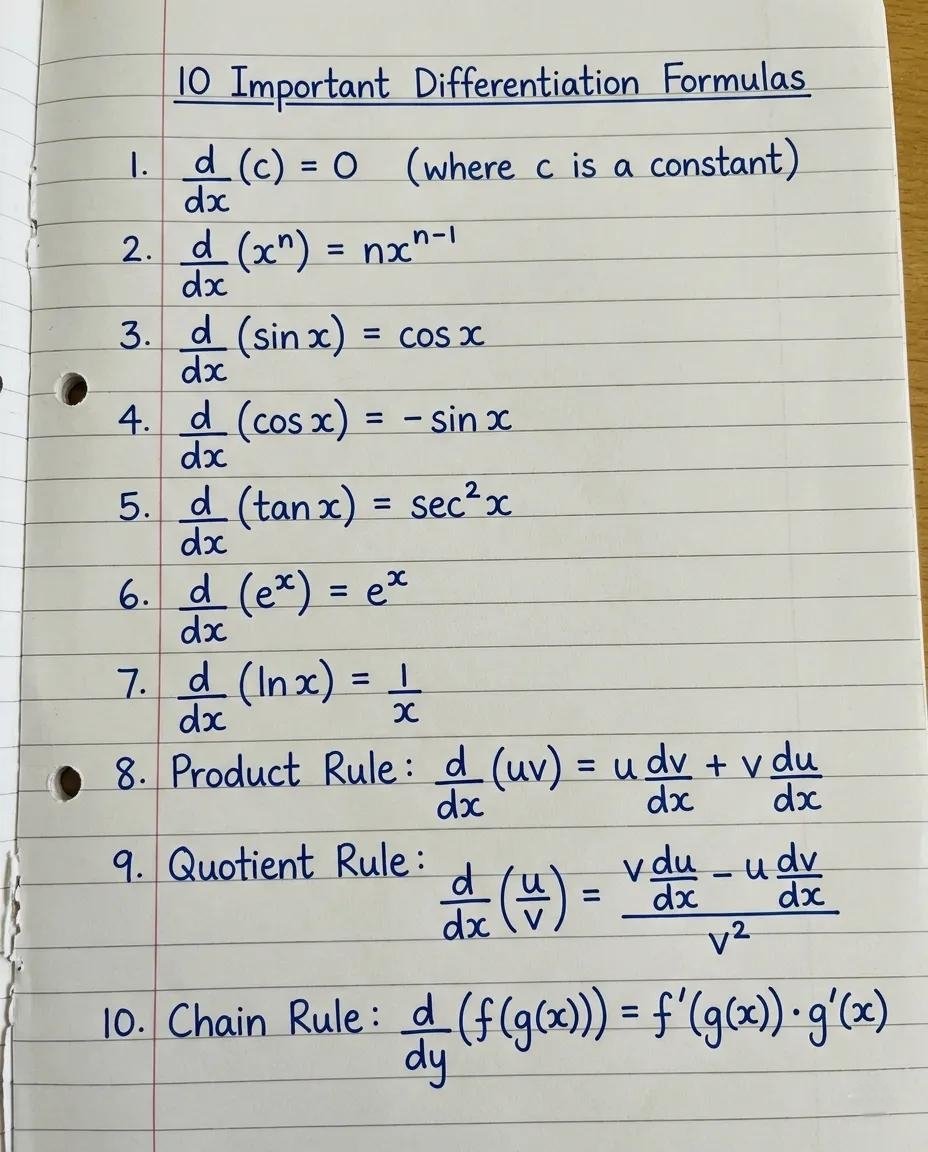 10 Important Differentiation Formulas
1. d/dx (c) = 0 (where c is a constant)
2. d/dx (xⁿ) = nxⁿ⁻¹
3. d/dx (sin x) = cos x
4. d/dx (cos x) = - sin x
5. d/dx (tan x) = sec² x
6. d/dx (eˣ) = eˣ
7. d/dx (ln x) = 1/x
8. Product Rule: d/dx (uv) = u dv/dx + v du/dx
9. Quotient Rule: d/dx (u/v) = (v du/dx - u dv/dx)/v²
10. Chain Rule: d/dy (f(g(x))) = f'(g(x)) · g'(x)